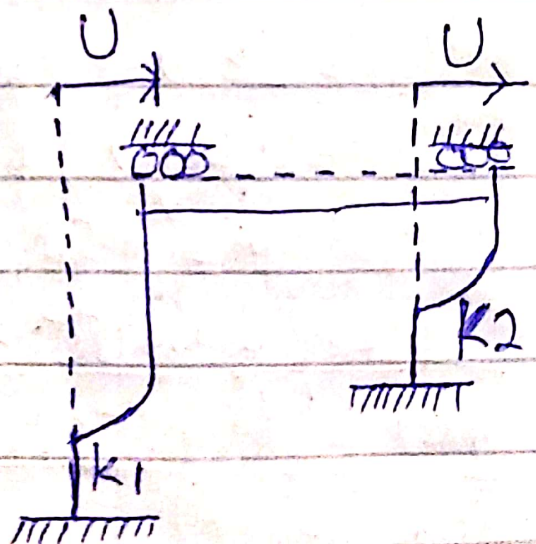 U U
K2
K1